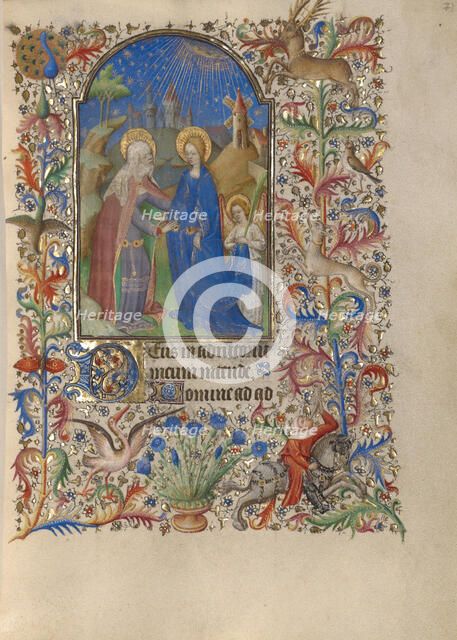 71
Heritage
Heritage
Heritage
Heritage
Deus in adiutoriu
meum intende
Domine ad ad
Heritage
Heritage